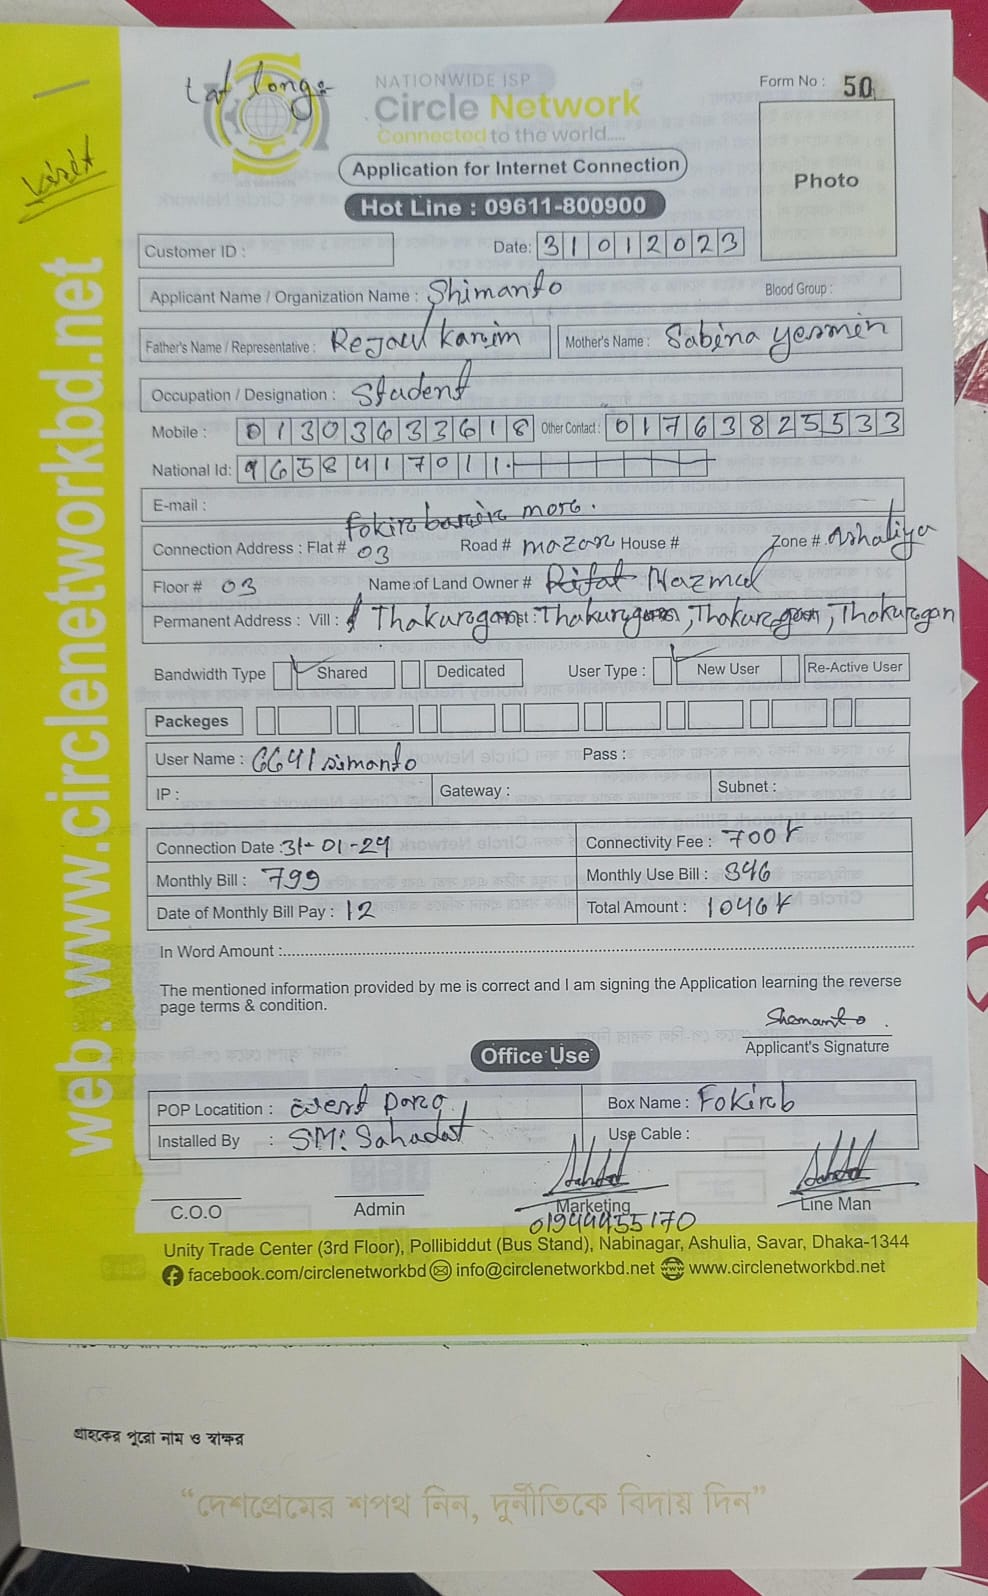 Lat long:
NATIONWIDE ISP
Circle Network
Connected to the world.....
Form No : 50
Photo
Visit
Application for Internet Connection
Hot Line : 09611-800900
Customer ID :
Date: 31012023
Applicant Name / Organization Name : Shimanto
Blood Group :
Father's Name / Representative : Rejaul Karim
Mother's Name : Sabina yesmin
Occupation / Designation : Student
Mobile : 01303633618 Other Contact : 01763825533
National Id: 9658417011
E-mail :
Fokir more.
Connection Address : Flat # 03 Road # mazar House # Zone # Ashaliya
Floor # 03 Name of Land Owner # Nazmul
Permanent Address : Vill : Thakurgaon, Thakurgaon, Thakurgaon, Thakurgaon
Bandwidth Type Shared Dedicated User Type : New User Re-Active User
Packeges
User Name : CC41simanto Pass :
IP : Gateway : Subnet :
Connection Date : 31-01-24 Connectivity Fee : 700৳
Monthly Bill : 799 Monthly Use Bill : 346
Date of Monthly Bill Pay : 12 Total Amount : 1046৳
In Word Amount :
The mentioned information provided by me is correct and I am signing the Application learning the reverse
page terms & condition.
Shemanto
Applicant's Signature
Office Use
POP Locatition : West Para Box Name : Fokirb
Installed By : SM: Sahadat Use Cable :
C.O.O Admin Marketing Line Man
01944455170
Unity Trade Center (3rd Floor), Pollibiddut (Bus Stand), Nabinagar, Ashulia, Savar, Dhaka-1344
facebook.com/circlenetworkbd info@circlenetworkbd.net www.circlenetworkbd.net
web: www.circlenetworkbd.net
গ্রাহকের পুরো নাম ও স্বাক্ষর
“দেশপ্রেমের শপথ নিন, দুর্নীতিকে বিদায় দিন”